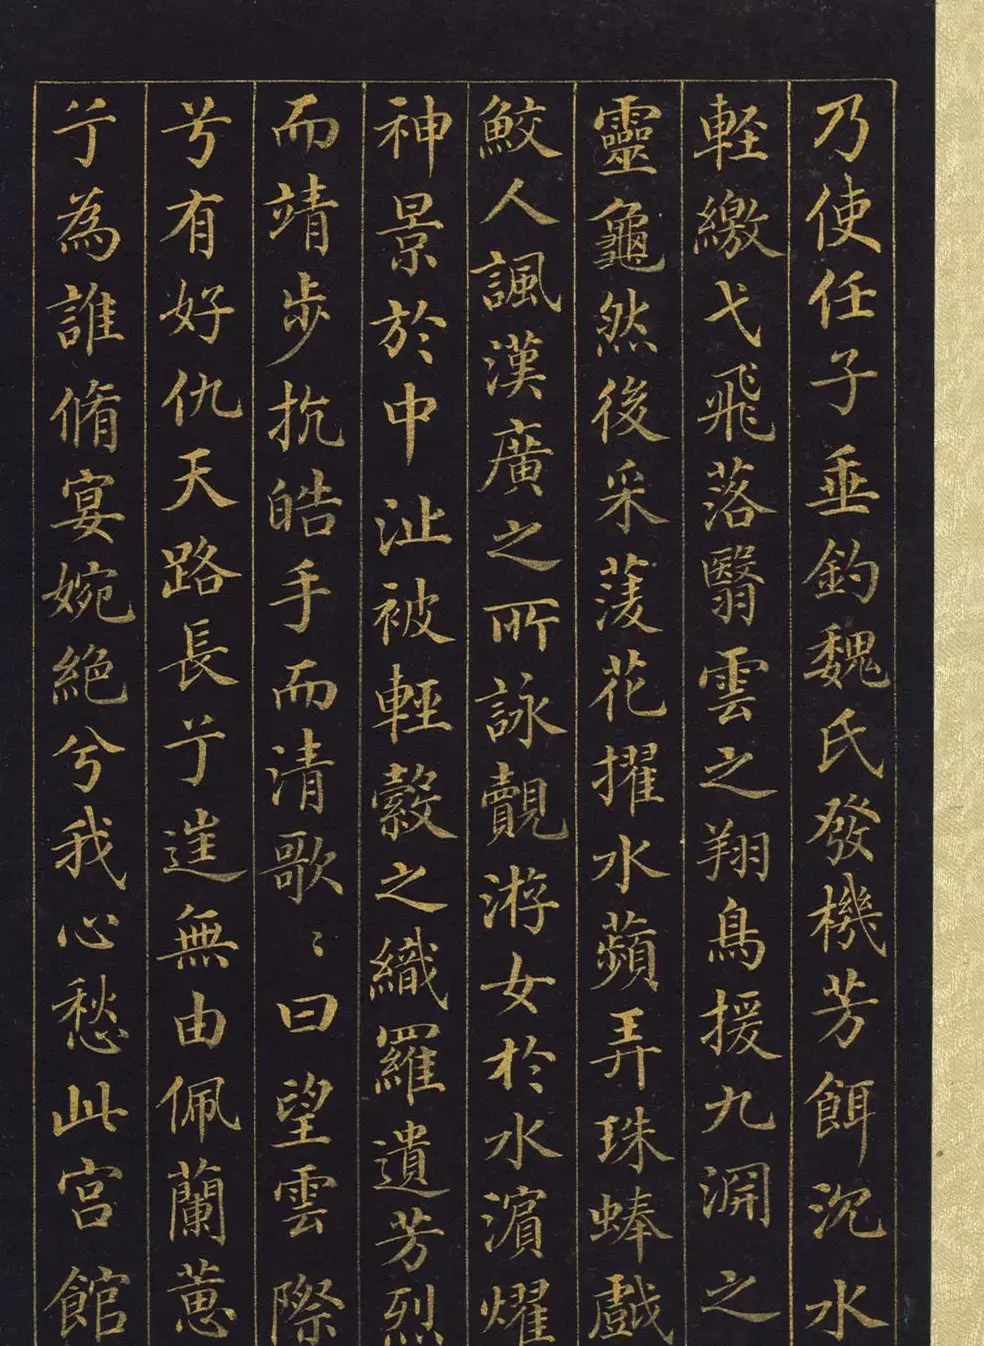 乃使任子垂釣魏氏發機芳餌沉水
軽繳弋飛落翳雲之翔鳥援九淵之
靈龜然後采菱花擢水蘋弄珠蜯戲
鮫人諷漢廣之所詠覿游女於水濱燿
神景於中沚被輕縠之纖羅遺芳烈
而靖步抗皓手而清歌〻曰望雲際
兮有好仇天路長兮往無由佩蘭蕙
兮為誰脩宴婉絕兮我心愁此宮館